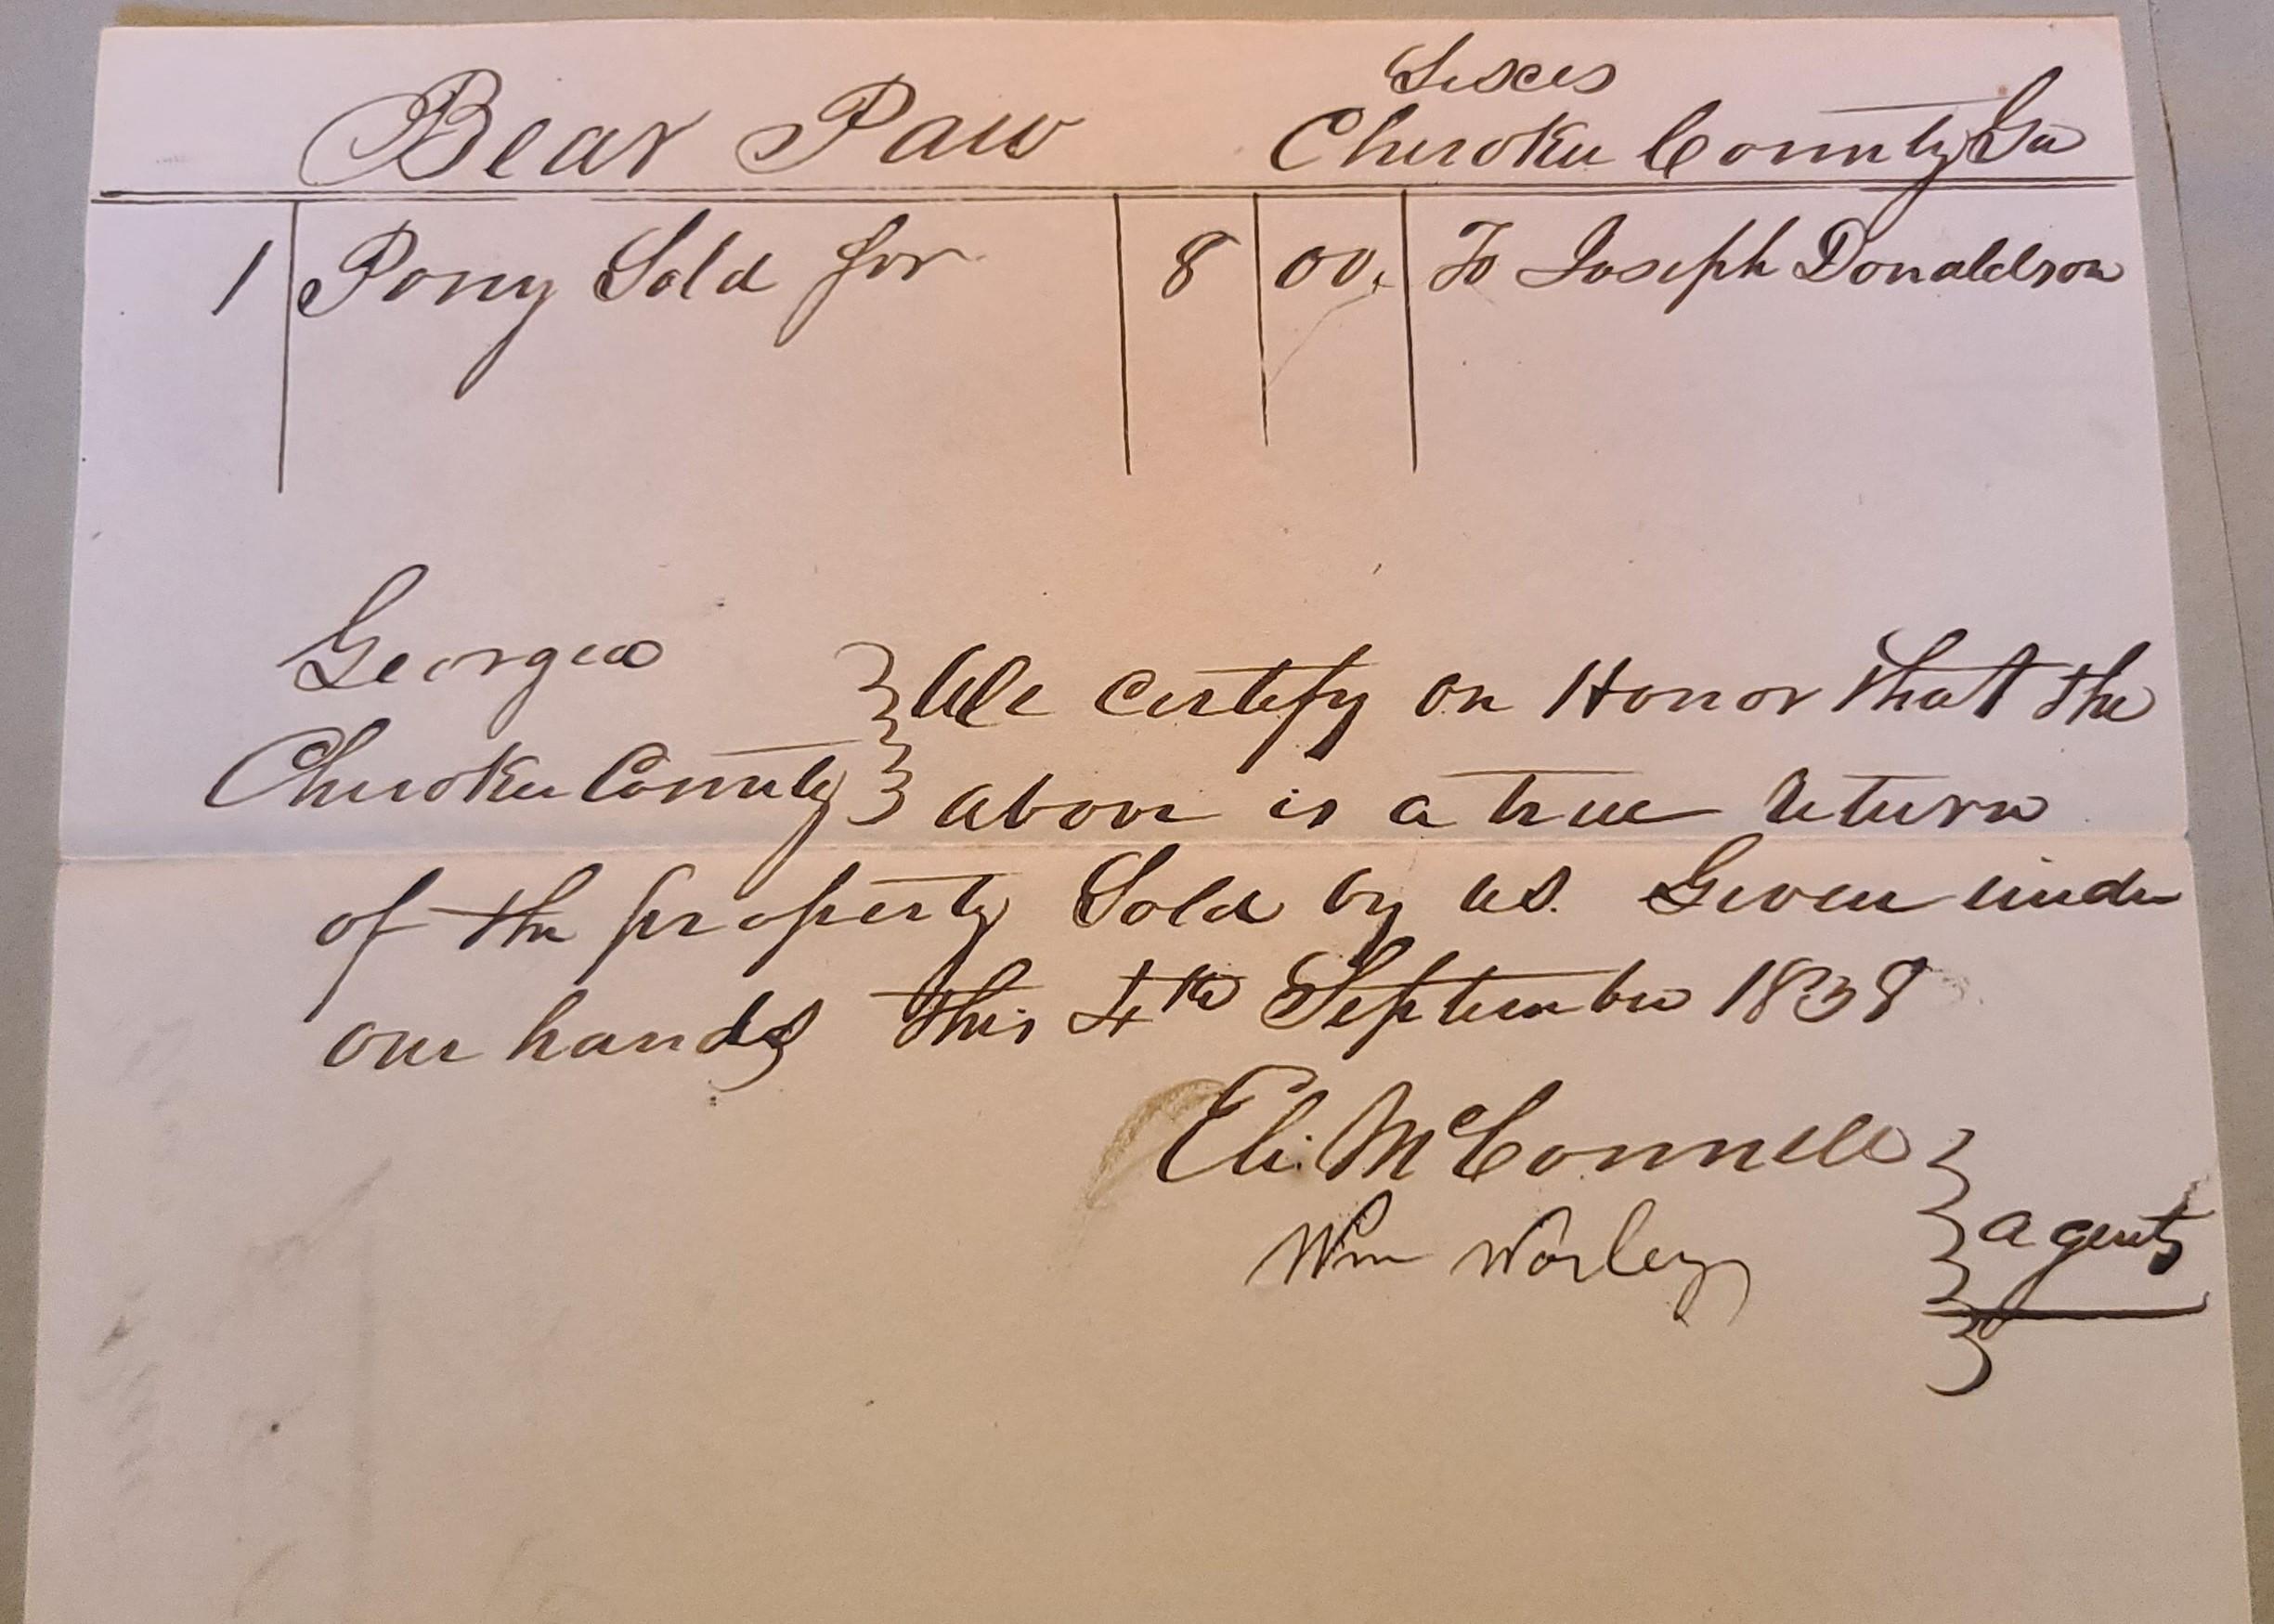 Bear Paw
Cherokee County Ga
1 Pony Sold for 8 00. To Joseph Donaldson
Georgia
Cherokee County } We certify on Honor that the
above is a true return
of the property Sold by us. Given under
our hands this 4th September 1838
Eli. McConnell
Wm Worley } agents